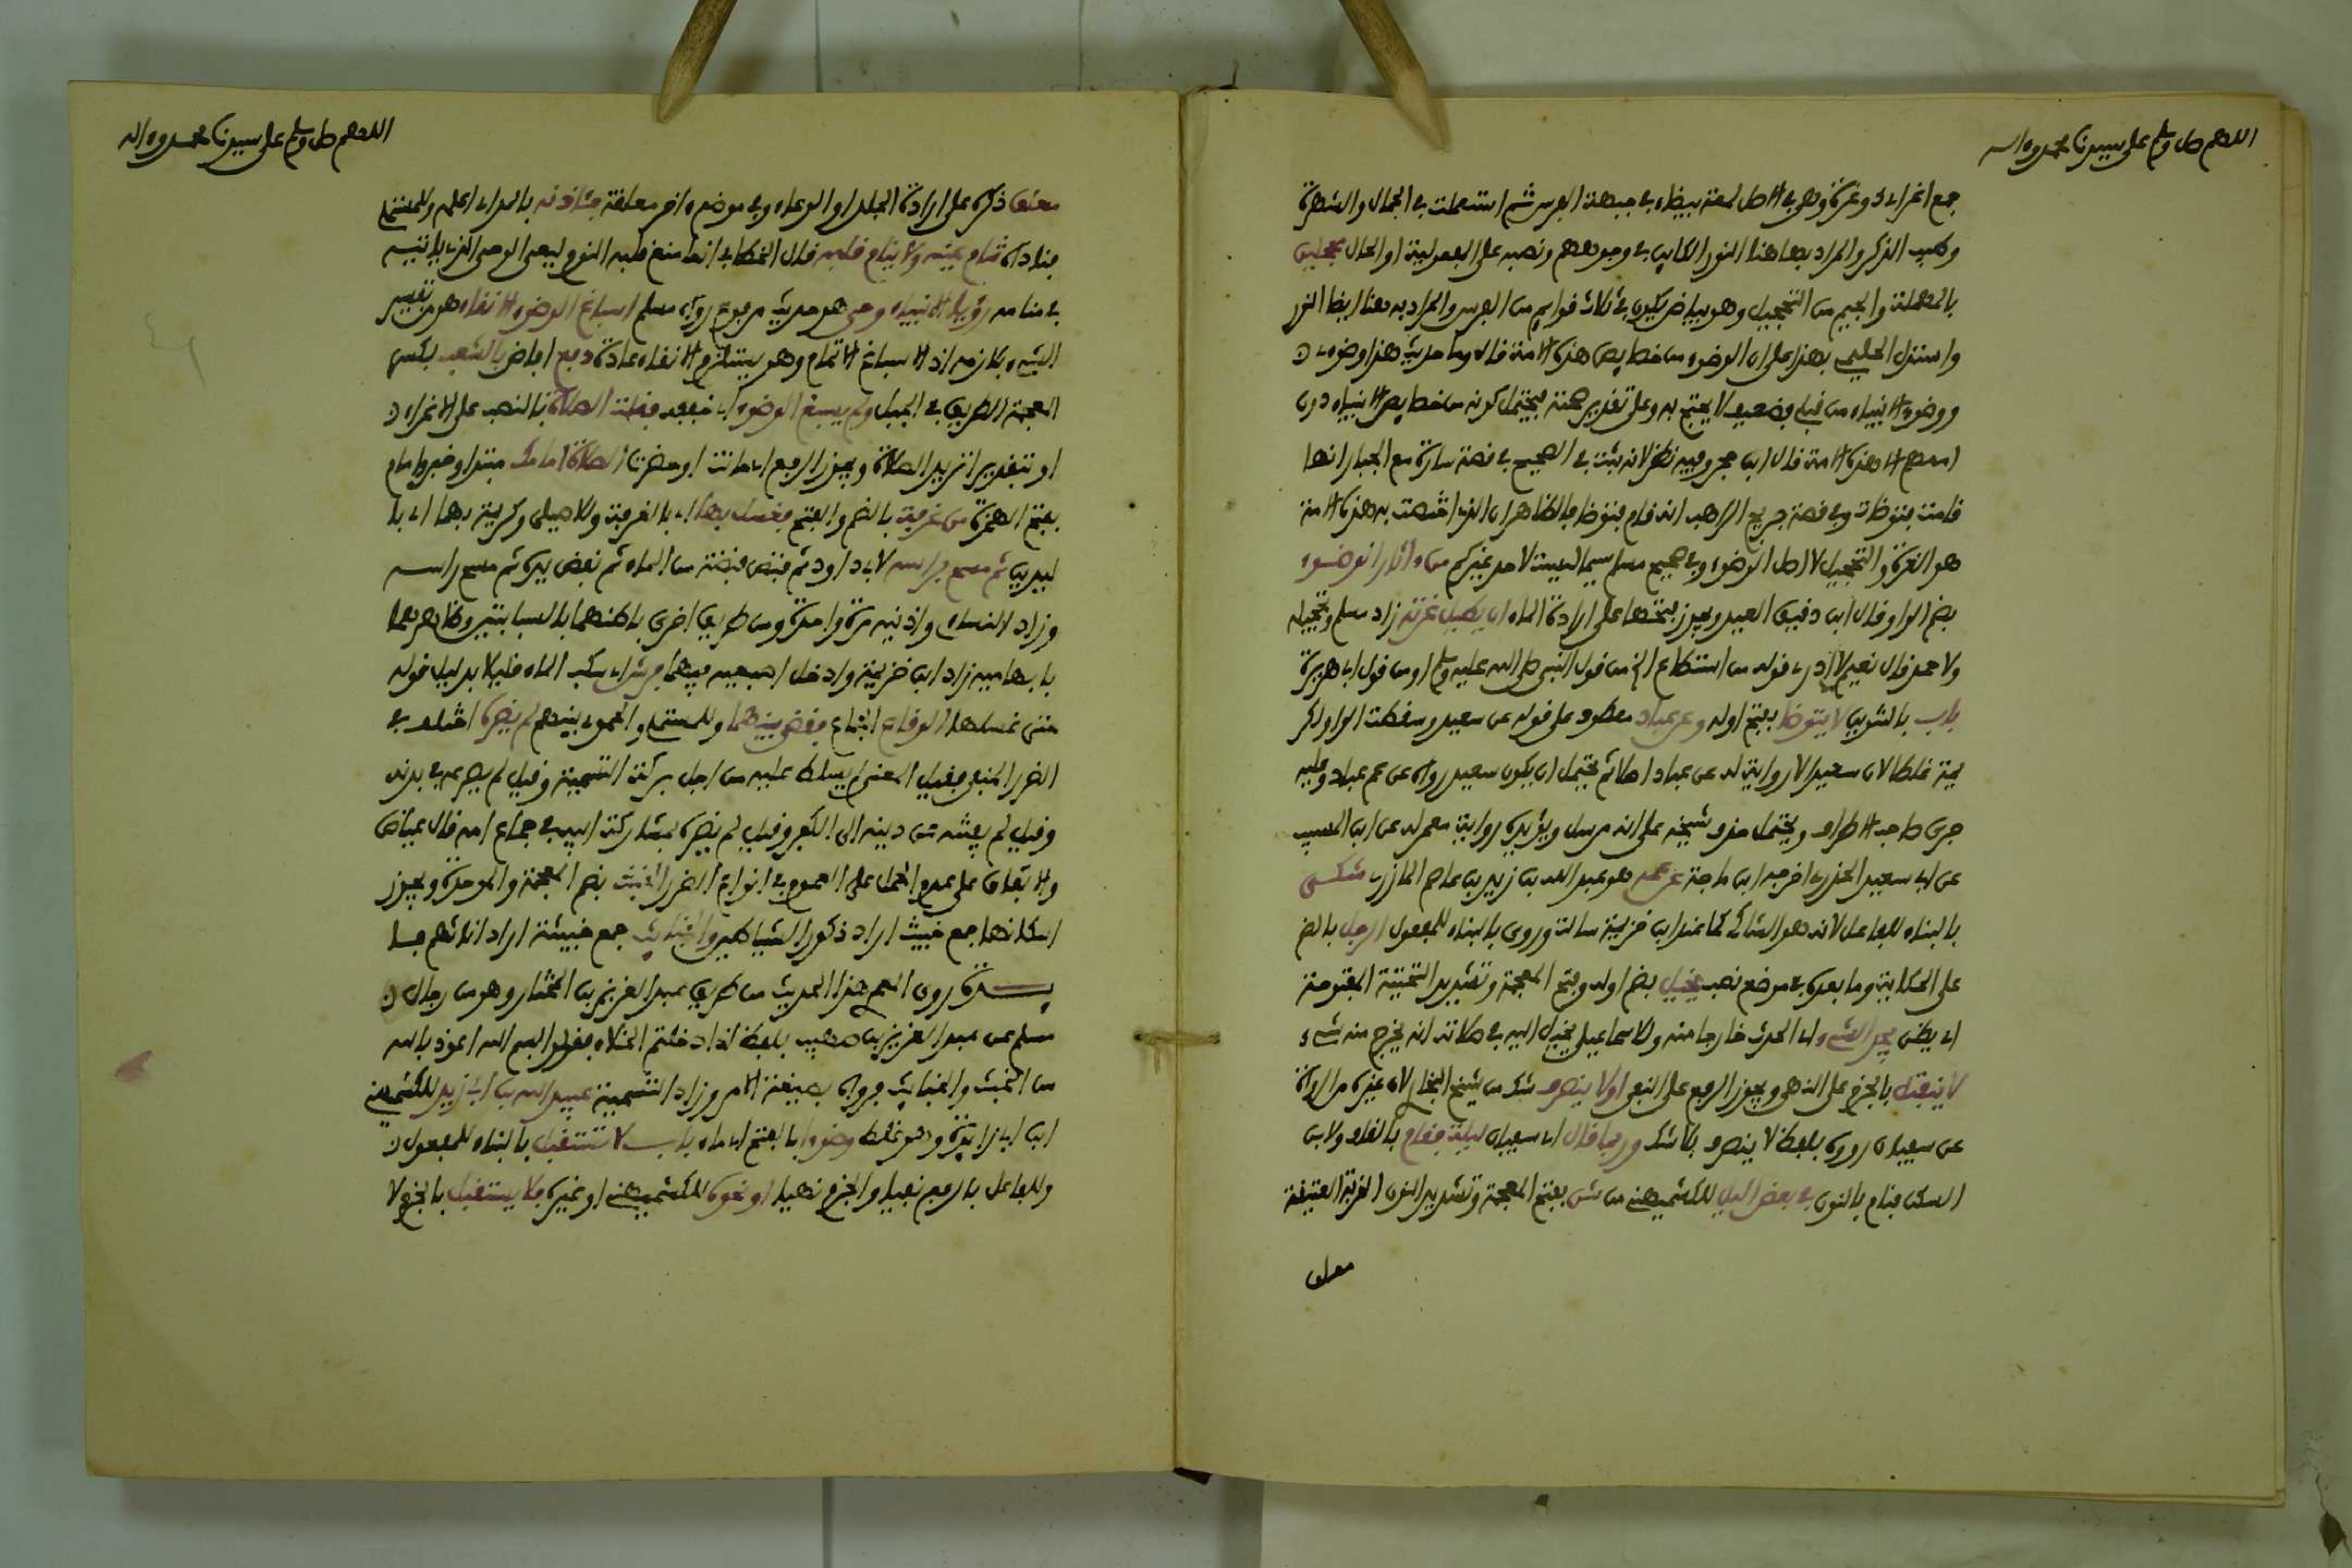 اللهم صل وسلم على سيدنا محمد وءاله
جمع اغر اي ذو غرة وهي في الاصل لمعة بيضاء في جبهة الفرس ثم استعملت في الجمال والشهرة
وطيب الذكر والمراد بها هنا النور الكاين في وجوههم ونصبه على المفعولية او الحال محجلين
بالمهملة والجيم من التحجيل وهو بياض يكون في ثلاث قوايم من الفرس والمراد به هنا ايضا النور
واستدل الحليمي بهذا على ان الوضوء من خصايص هذه الامة قال وما حديث هذا وضوءي
ووضوء الانبياء من قبلي فضعيف لا يحتج به وعلى تقدير صحته فيحتمل كونه من خصايص الانبياء دون
اممهم الا هذه الامة قال ابن حجر وفيه نظر لانه ثبت في الصحيح في قصة سارة مع الجبار انها
قامت تتوضا وفي قصة جريج الراهب انه قام فتوضا فالظاهر ان الذي اختصت به هذه الامة
هو الغرة والتحجيل لا اصل الوضوء وفي صحيح مسلم سيما ليست لاحد غيركم من ءاثار الوضوء
بضم الواو وقال ابن دقيق العيد ويجوز فتحها على ارادة الماء ان يطيل غرته زاد مسلم وتحجيله
ولاحمد قال نعيم لا ادري قوله من استطاع الخ من قول النبي صلى الله عليه وسلم او من قول ابي هريرة
باب بالتنوين لا يتوضا بفتح اوله وعن عباد معطوف على قوله عن سعيد وسقطت الواو لكر
يمة غلطا لان سعيدا لا رواية له عن عباد اصلا ثم يحتمل ان يكون سعيد رواه عن عم عباد وعليه
جرى صاحب الاطراف ويحتمل حذف شيخه على انه مرسل ويؤيده رواية معمر له عن ابن المسيب
عن ابي سعيد الخدري اخرجه ابن ماجة عن عمه هو عبد الله بن زيد بن عاصم المازني شكى
بالبناء للفاعل لانه هو الشاكي كما عند ابن خزيمة سالت وروي بالبناء للمفعول الرجل بالضم
على الحكاية وما بعده في موضع نصب يخيل بضم اوله وفتح المعجمة وتشديد التحتية المفتوحة
اي يظن يجد الشيء اي الحدث خارجا منه ولاسماعيلي يخيل اليه في صلاته انه يخرج منه شيء
لا ينفتل بالجزم على النهي ويجوز الرفع على النفي او لا ينصرف شك من شيخ البخاري لان غيره من الرواة
عن سفيان رووه بلفظ لا ينصرف بلا شك وربما قال اي سفيان ليلة فقام بالقاف ولابن
السكن فنام بالنون في بعض الليل للكشميهني من شن بفتح المعجمة وتشديد النون القربة العتيقة
معلق
اللهم صل وسلم على سيدنا محمد وءاله
معلق ذكره على ارادة الجلد او الوعاء وفي موضع ءاخر معلقة فئاذنه بالمد اي اعلمه وللمستملي
فناداه تنام عينه ولا ينام قلبه قال الخطابي انما منع قلبه النوم ليعي الوحي الذي ياتيه
في منامه رؤيا الانبياء وحي هو حديث مرفوع رواه مسلم اسباغ الوضوء الانقاء هو من تفسير
الشيء بلازمه اذ الاسباغ الاتمام وهو يستلزم الانقاء عادة دفع افاض بالشعب بكسر
المعجمة الطريق في الجبل ولم يسبغ الوضوء اي خففه فقلت الصلاة بالنصب على الاغراء
او بتقدير اتريد الصلاة ويجوز الرفع اي حانت او حضرت الصلاة امامك مبتدا وخبر وامام
بفتح الهمزة من غرفة بالضم والفتح فغسل بها اي بالغرفة وللاصيلي وكريمة بهما اي با
ليدين ثم مسح براسه لابي داود ثم قبض قبضة من الماء ثم نفض يده ثم مسح راسه
وزاد النسائي واذنيه مرة واحدة ومن طريق اخرى باطنهما بالسبابتين وظاهرهما
بابهاميه زاد ابن خزيمة وادخل اصبعيه فيهما فرش اي سكب الماء قليلا بدليل قوله
حتى غسلها الوقاع الجماع فقضي بينهما وللمستملي والحموي بينهم لم يضره اختلف في
الضرر المنفي فقيل المعنى لم يسلط عليه من اجل بركة التسمية وقيل لم يصرعه في بدنه
وقيل لم يفتنه عن دينه الى الكفر وقيل لم يضره بمشاركة ابيه في جماع امه قال عياض
والاتفاق على عدم الحمل على العموم في انواع الضرر الخبث بضم المعجمة والموحدة ويجوز
اسكانها جمع خبيث اراد ذكور الشياطين والخبايث جمع خبيثة اراد اناثهم فا
يدة روى العمري هذا الحديث من طريق عبد العزيز بن المختار وهو من رجال
مسلم عن عبد العزيز بن صهيب بلفظ اذا دخلتم الخلاء فقولوا بسم الله اعوذ بالله
من الخبث والخبايث فرواه بصيغة الامر وزاد التسمية عبيد الله بن ابي زيد للكشميهني
ابن ابي زايدة وهو غلط وضوءا بالفتح اي ماء باب لا تستقبل بالبناء للمفعول
وللفاعل بالرفع نفيا والجزم نهيا او نحوه للكشميهني او غيره فلا يستقبل بالجزم لا